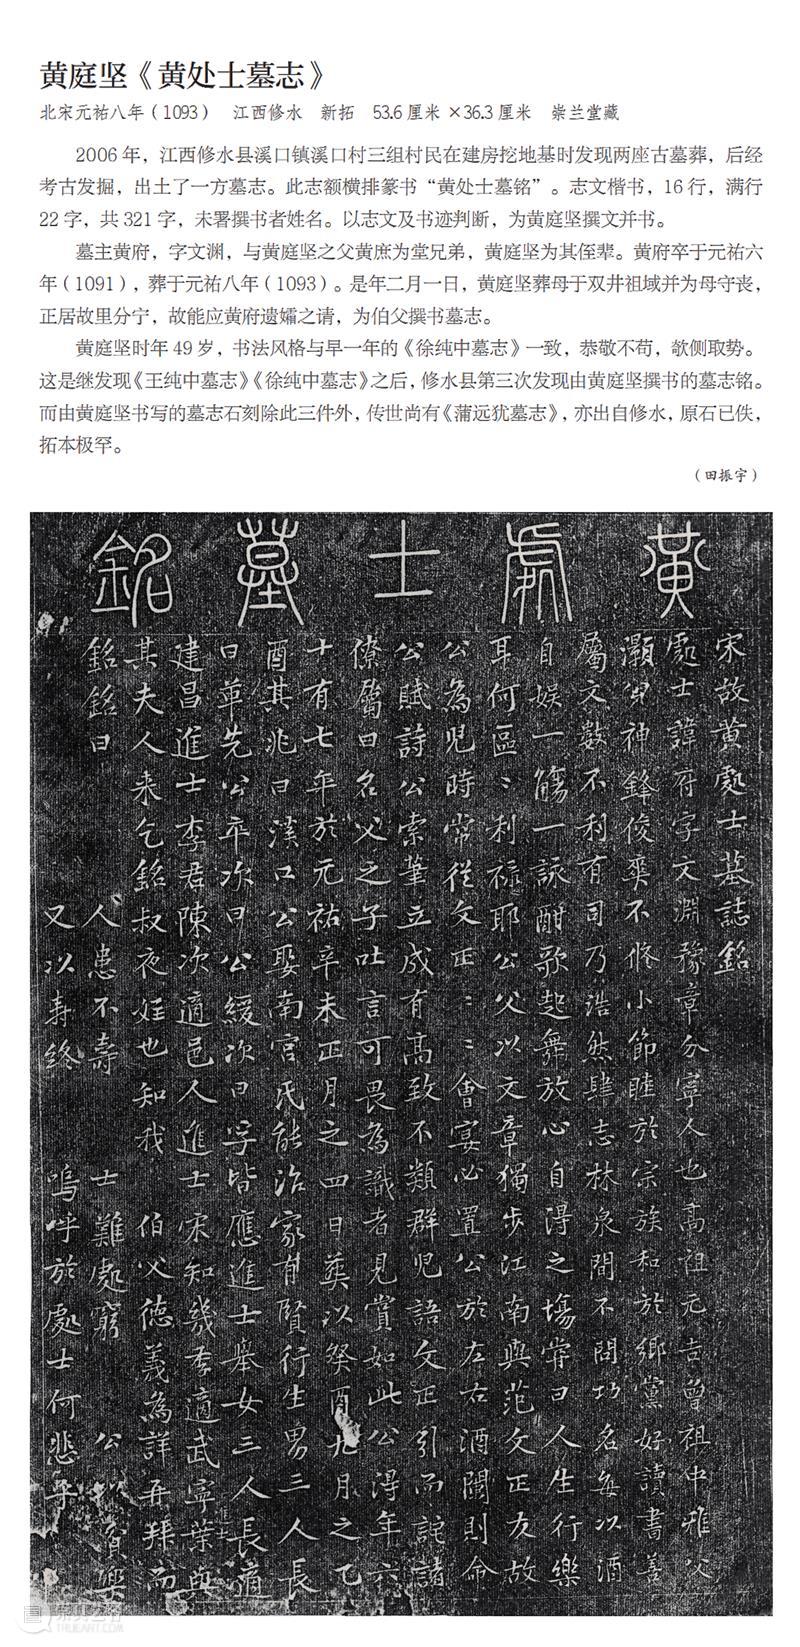 黄庭坚《黄处士墓志》
北宋元祐八年（1093） 江西修水 新拓 53.6厘米×36.3厘米 崇兰堂藏
2006年，江西修水县溪口镇溪口村三组村民在建房挖地基时发现两座古墓葬，后经
考古发掘，出土了一方墓志。此志额横排篆书“黄处士墓铭”。志文楷书，16行，满行
22字，共321字，未署撰书者姓名。以志文及书迹判断，为黄庭坚撰文并书。
墓主黄府，字文渊，与黄庭坚之父黄庶为堂兄弟，黄庭坚为其侄辈。黄府卒于元祐六
年（1091），葬于元祐八年（1093）。是年二月一日，黄庭坚葬母于双井祖域并为母守丧，
正居故里分宁，故能应黄府遗孀之请，为伯父撰书墓志。
黄庭坚时年49岁，书法风格与早一年的《徐纯中墓志》一致，恭敬不苟，欹侧取势。
这是继发现《王纯中墓志》《徐纯中墓志》之后，修水县第三次发现由黄庭坚撰书的墓志铭。
而由黄庭坚书写的墓志石刻除此三件外，传世尚有《蒲远犹墓志》，亦出自修水，原石已佚，
拓本极罕。
（田振宇）
黄處士墓銘
宋故黄處士墓誌銘
處士諱府字文淵豫章分寧人也高祖元吉曾祖中雅父
灝公神鋒俊爽不脩小節睦於宗族和於鄉黨好讀書善
屬文數不利有司乃浩然肆志林泉間不問功名每以酒
自娱一觴一詠酣歌起舞放心自得之場常曰人生行樂
耳何區〻利禄耶公父以文章獨步江南與范文正友故
公為兒時常從文正〻〻會宴必置公於左右酒闌則命
公賦詩公索筆立成有高致不類群兒語文正引而詫諸
僚屬曰名父之子吐言可畏為識者見賞如此公得年六
十有七卒於元祐辛未正月之四日葬以癸酉九月之乙
酉其兆曰溪口公娶南宫氏能治家有賢行生男三人長
曰革先公卒次曰公緩次曰字皆應進士舉女三人長適
建昌進士李君陳次適邑人進士宋知幾季適武寧葉與
其夫人来乞銘叔夜姪也知我 伯父德義為詳再拜而
銘銘曰
人患不壽 士難處窮 公 貧樂
又以壽終 嗚呼於處士何悲乎